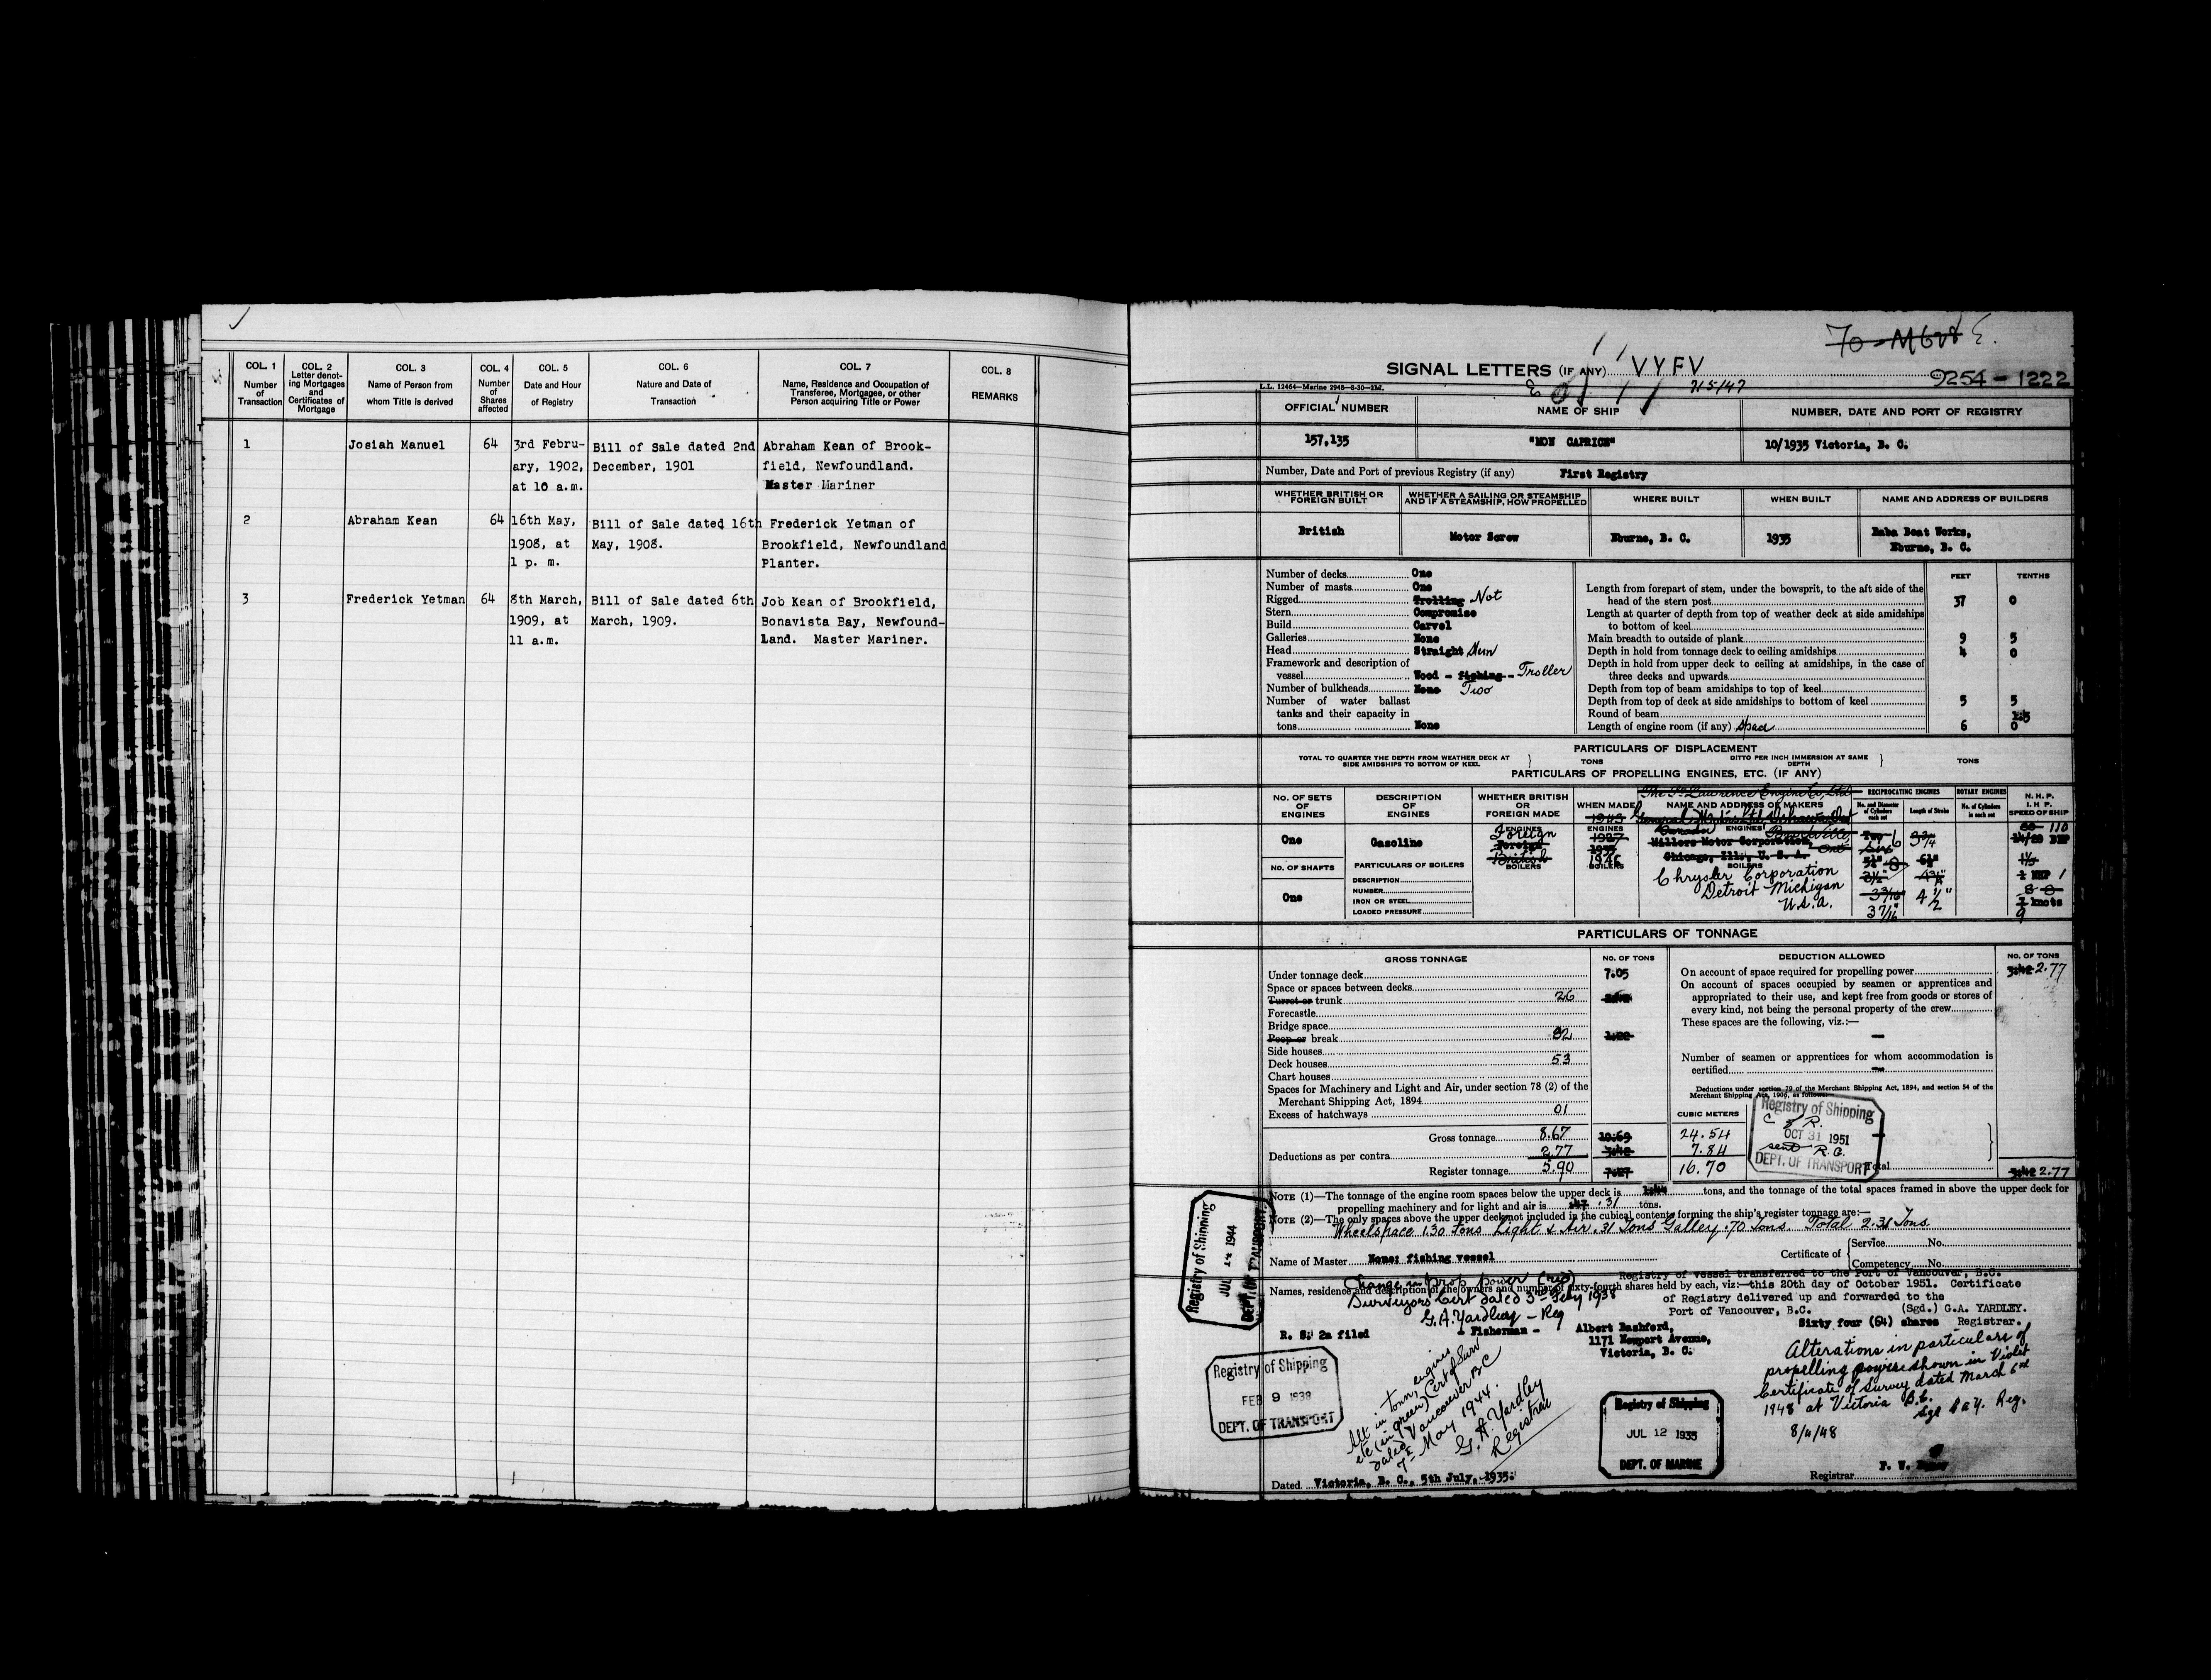 COL. 1 COL. 2 COL. 3 COL. 4 COL. 5 COL. 6 COL. 7 COL. 8
Number of Transaction
Letter denoting Mortgages and Certificates of Mortgage
Name of Person from whom Title is derived
Number of Shares affected
Date and Hour of Registry
Nature and Date of Transaction
Name, Residence and Occupation of Transferee, Mortgagee, or other Person acquiring Title or Power
REMARKS
1 Josiah Manuel 64 3rd Febru- Bill of Sale dated 2nd Abraham Kean of Brook-
ary, 1902, December, 1901 field, Newfoundland.
at 10 a.m. Master Mariner
2 Abraham Kean 64 16th May, Bill of Sale dated 16th Frederick Yetman of
1908, at May, 1908. Brookfield, Newfoundland
1 p. m. Planter.
3 Frederick Yetman 64 8th March, Bill of Sale dated 6th Job Kean of Brookfield,
1909, at March, 1909. Bonavista Bay, Newfound-
11 a.m. land. Master Mariner.
SIGNAL LETTERS (IF ANY) VYFV
9254-1222
L.L. 12464—Marine 2948—8-30—2M.
21/5/47
OFFICIAL NUMBER NAME OF SHIP NUMBER, DATE AND PORT OF REGISTRY
157,135 "MON CAPRICE" 10/1935 Victoria, B. C.
Number, Date and Port of previous Registry (if any) First Registry
WHETHER BRITISH OR FOREIGN BUILT
WHETHER A SAILING OR STEAMSHIP AND IF A STEAMSHIP, HOW PROPELLED
WHERE BUILT WHEN BUILT NAME AND ADDRESS OF BUILDERS
British Motor Screw Eburne, B. C. 1935 Baba Boat Works,
Eburne, B. C.
Number of decks One
Number of masts One
Rigged Trolling Not
Stern Compromise
Build Carvel
Galleries None
Head Straight Stem
Framework and description of
vessel Wood - fishing - Troller
Number of bulkheads None Two
Number of water ballast
tanks and their capacity in
tons None
FEET TENTHS
Length from forepart of stem, under the bowsprit, to the aft side of the
head of the stern post 37 0
Length at quarter of depth from top of weather deck at side amidships
to bottom of keel
Main breadth to outside of plank 9 5
Depth in hold from tonnage deck to ceiling amidships 4 0
Depth in hold from upper deck to ceiling at amidships, in the case of
three decks and upwards
Depth from top of beam amidships to top of keel
Depth from top of deck at side amidships to bottom of keel 5 5
Round of beam
Length of engine room (if any) space 6 0
PARTICULARS OF DISPLACEMENT
TOTAL TO QUARTER THE DEPTH FROM WEATHER DECK AT SIDE AMIDSHIPS TO BOTTOM OF KEEL } TONS
DITTO PER INCH IMMERSION AT SAME DEPTH } TONS
PARTICULARS OF PROPELLING ENGINES, ETC. (IF ANY)
The St. Lawrence Engine Co. Ltd
No. OF SETS OF ENGINES
DESCRIPTION OF ENGINES
WHETHER BRITISH OR FOREIGN MADE
WHEN MADE
NAME AND ADDRESS OF MAKERS
RECIPROCATING ENGINES
No. and Diameter of Cylinders each set
Length of Stroke
ROTARY ENGINES
No. of Cylinders in each set
N. H. P.
I. H P.
SPEED OF SHIP
1943 General Motors Ltd Oshawa Ont
ENGINES ENGINES ENGINES
One Gasoline Foreign 1927 Canada Brockville Ont
Foreign 1935 Millers Motor Corporation,
British 1946 Chicago, Ill., U. S. A.
BOILERS BOILERS BOILERS
Chrysler Corporation
Detroit Michigan
U.S.A.
Two 6 3¾
Six
3 7/16 4½"
110
14/20 BHP
1
7 knots
9
No. OF SHAFTS
One
PARTICULARS OF BOILERS
DESCRIPTION
NUMBER
IRON OR STEEL
LOADED PRESSURE
PARTICULARS OF TONNAGE
GROSS TONNAGE No. OF TONS
Under tonnage deck 7.05
Space or spaces between decks
Turret or trunk 26
Forecastle
Bridge space
Poop or break 82 1.22
Side houses
Deck houses 53
Chart houses
Spaces for Machinery and Light and Air, under section 78 (2) of the
Merchant Shipping Act, 1894
Excess of hatchways 01
Gross tonnage 8.67 10.69
Deductions as per contra 2.77 3.42
Register tonnage 5.90 7.27
DEDUCTION ALLOWED No. OF TONS
On account of space required for propelling power 3.42 2.77
On account of spaces occupied by seamen or apprentices and
appropriated to their use, and kept free from goods or stores of
every kind, not being the personal property of the crew
These spaces are the following, viz.:—
Number of seamen or apprentices for whom accommodation is
certified
Deductions under section 79 of the Merchant Shipping Act, 1894, and section 54 of the
Merchant Shipping Act, 1906, as follows:—
CUBIC METERS
24.54
7.84
16.70
Registry of Shipping
C of R.
OCT 31 1951
sent R.G.
DEPT. OF TRANSPORT
Total 3.42 2.77
NOTE (1)—The tonnage of the engine room spaces below the upper deck is tons, and the tonnage of the total spaces framed in above the upper deck for
propelling machinery and for light and air is .31 tons.
NOTE (2)—The only spaces above the upper deck not included in the cubical contents forming the ship's register tonnage are:—
Wheelspace 1.30 Tons Light & Air .31 Tons Galley .70 Tons Total 2.31 Tons.
Name of Master None: fishing vessel
Certificate of { Service No.
Competency No.
Names, residence and description of the owners and number of sixty-fourth shares held by each, viz:—
Change in Prop power (red)
Surveyors Cert dated 3rd Feby 1938
G.A. Yardley - Reg
Registry of vessel transferred to the Port of Vancouver, B.C.
this 20th day of October 1951. Certificate
of Registry delivered up and forwarded to the
Port of Vancouver, B.C. (Sgd.) G.A. YARDLEY.
Registrar.
R. S. 2a filed - Fisherman - Albert Bashford, Sixty four (64) shares
1171 Newport Avenue,
Victoria, B. C.
Registry of Shipping
JUL 14 1944
DEPT. OF TRANSPORT
Registry of Shipping
FEB 9 1938
DEPT. OF TRANSPORT
Alt in tonn, engines
etc (in green) Cert of Surv
dated Vancouver BC
7th May 1944.
G. A. Yardley
Registrar
Registry of Shipping
JUL 12 1935
DEPT. OF MARINE
Alterations in particulars of
propelling power shown in Violet
Certificate of Survey dated March 6th
1948 at Victoria B.C.
Sgd G A Y. Reg.
8/4/48
Dated Victoria, B. C., 5th July, 1935.
Registrar F. W.